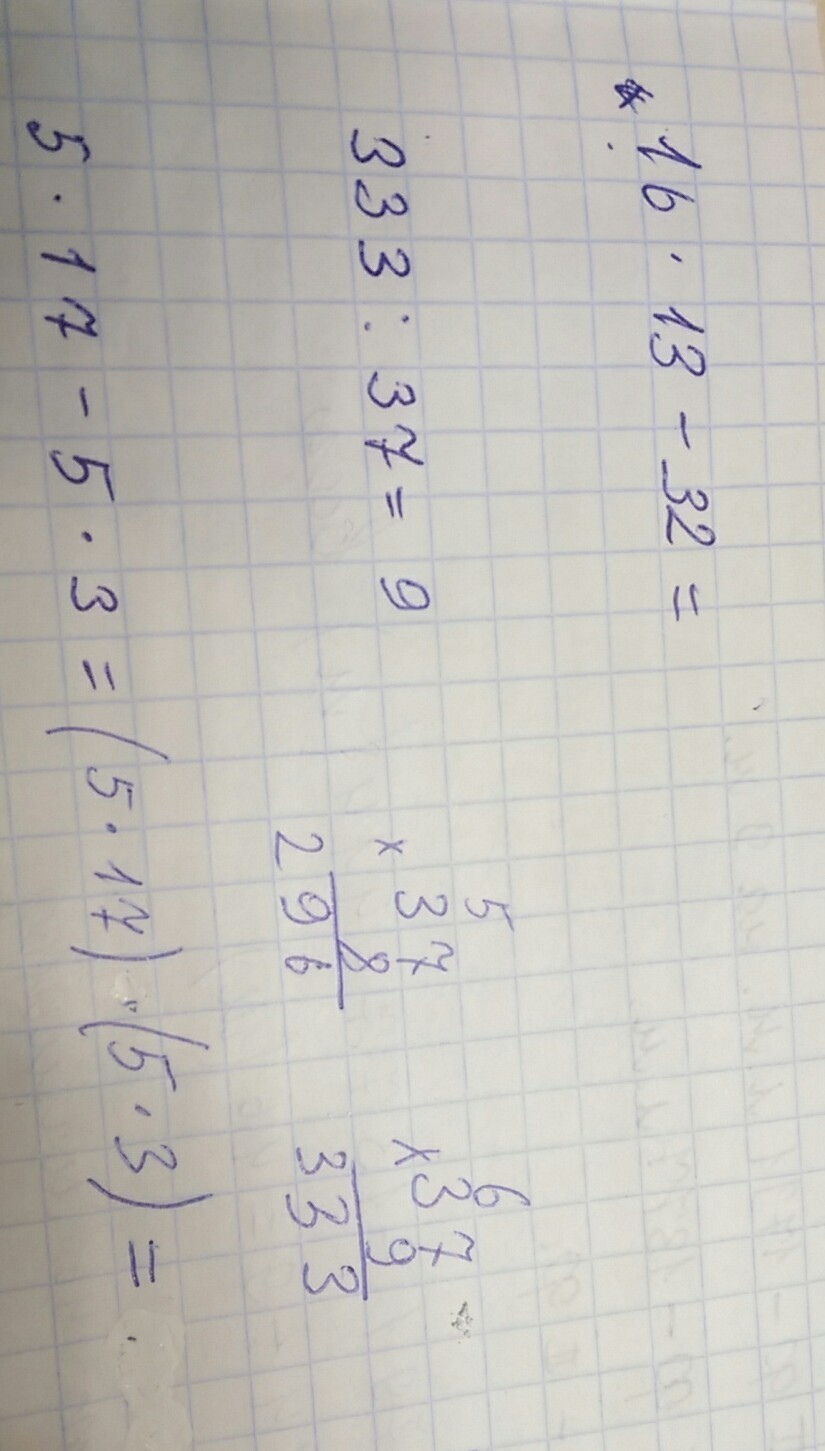 16 · 13 - 32 =
333 : 37 = 9
5
× 37
8
296
6
× 37
9
333
5 · 17 - 5 · 3 = (5 · 17) · (5 · 3) =